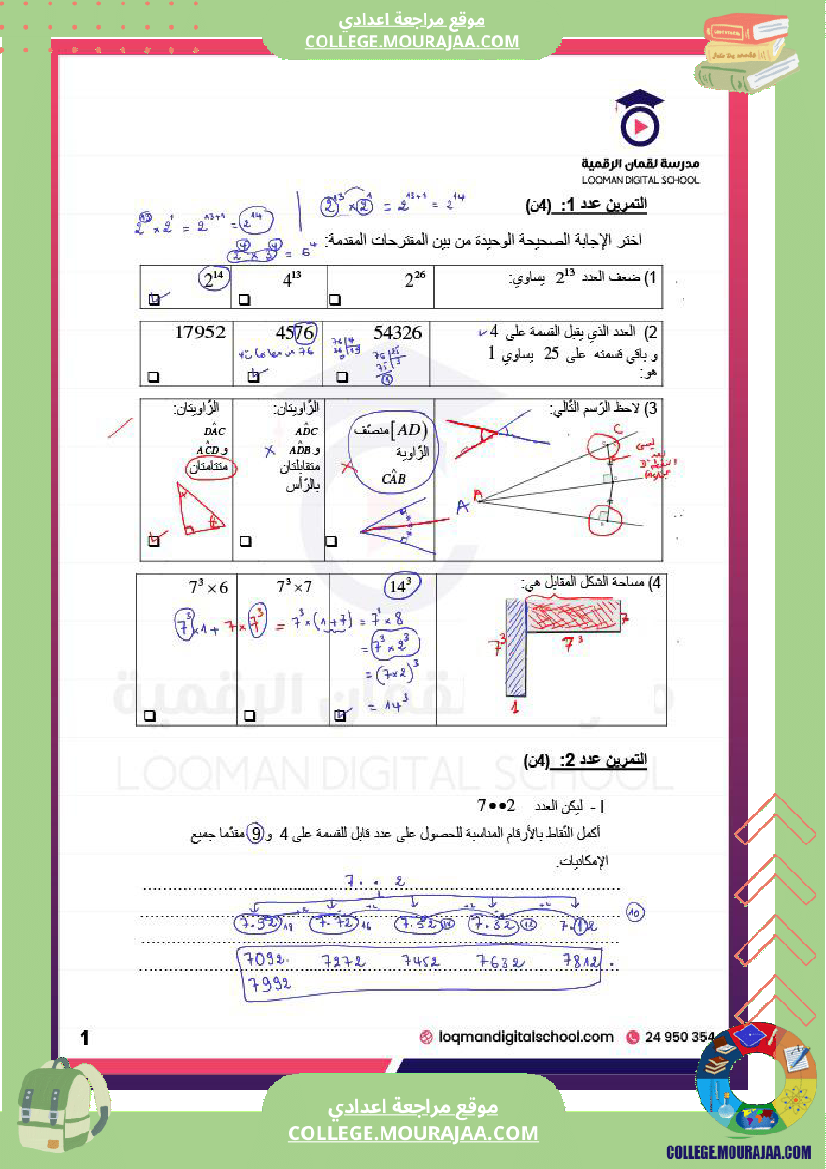 موقع مراجعة اعدادي
COLLEGE.MOURAJAA.COM
مدرسة لقمان الرقمية
LOQMAN DIGITAL SCHOOL
التمرين عدد 1: (4ن)
2¹³ × 2¹ = 2¹³⁺¹ = 2¹⁴
2¹³ × 2¹ = 2¹³⁺¹ = 2¹⁴
اختر الإجابة الصحيحة الوحيدة من بين المقترحات المقدمة:
2⁴ × 3⁴ = 6⁴
1) ضعف العدد 2¹³ يساوي:
2²⁶
4¹³
2¹⁴
2) العدد الذي يقبل القسمة على 4
و باقي قسمته على 25 يساوي 1
هو:
54326
4576
17952
3) لاحظ الرّسم التّالي:
C
A
A
[AD) منصّف
الزّاوية
CÂB
الزّاويتان:
ADC
و ADB
متقابلتان
بالرّأس
الزّاويتان:
DAC
و ACD
متتامّتان
4) مساحة الشكل المقابل هي:
14³
7³ × 7
7³ × 6
7³×1 + 7×7³ = 7³×(1+7) = 7³×8
= 7³×2³
= (7×2)³
= 14³
7³
7³
7
1
مدرسة لقمان الرقمية
LOQMAN DIGITAL SCHOOL
التمرين عدد 2: (4ن)
I - ليكن العدد 7●●2
أكمل النّقاط بالأرقام المناسبة للحصول على عدد قابل للقسمة على 4 و 9 مقدّما جميع
الإمكانيات.
7 . . 2
7092 7272 7452 7632 7812
7992
1
loqmandigitalschool.com 24 950 354
موقع مراجعة اعدادي
COLLEGE.MOURAJAA.COM
COLLEGE.MOURAJAA.COM